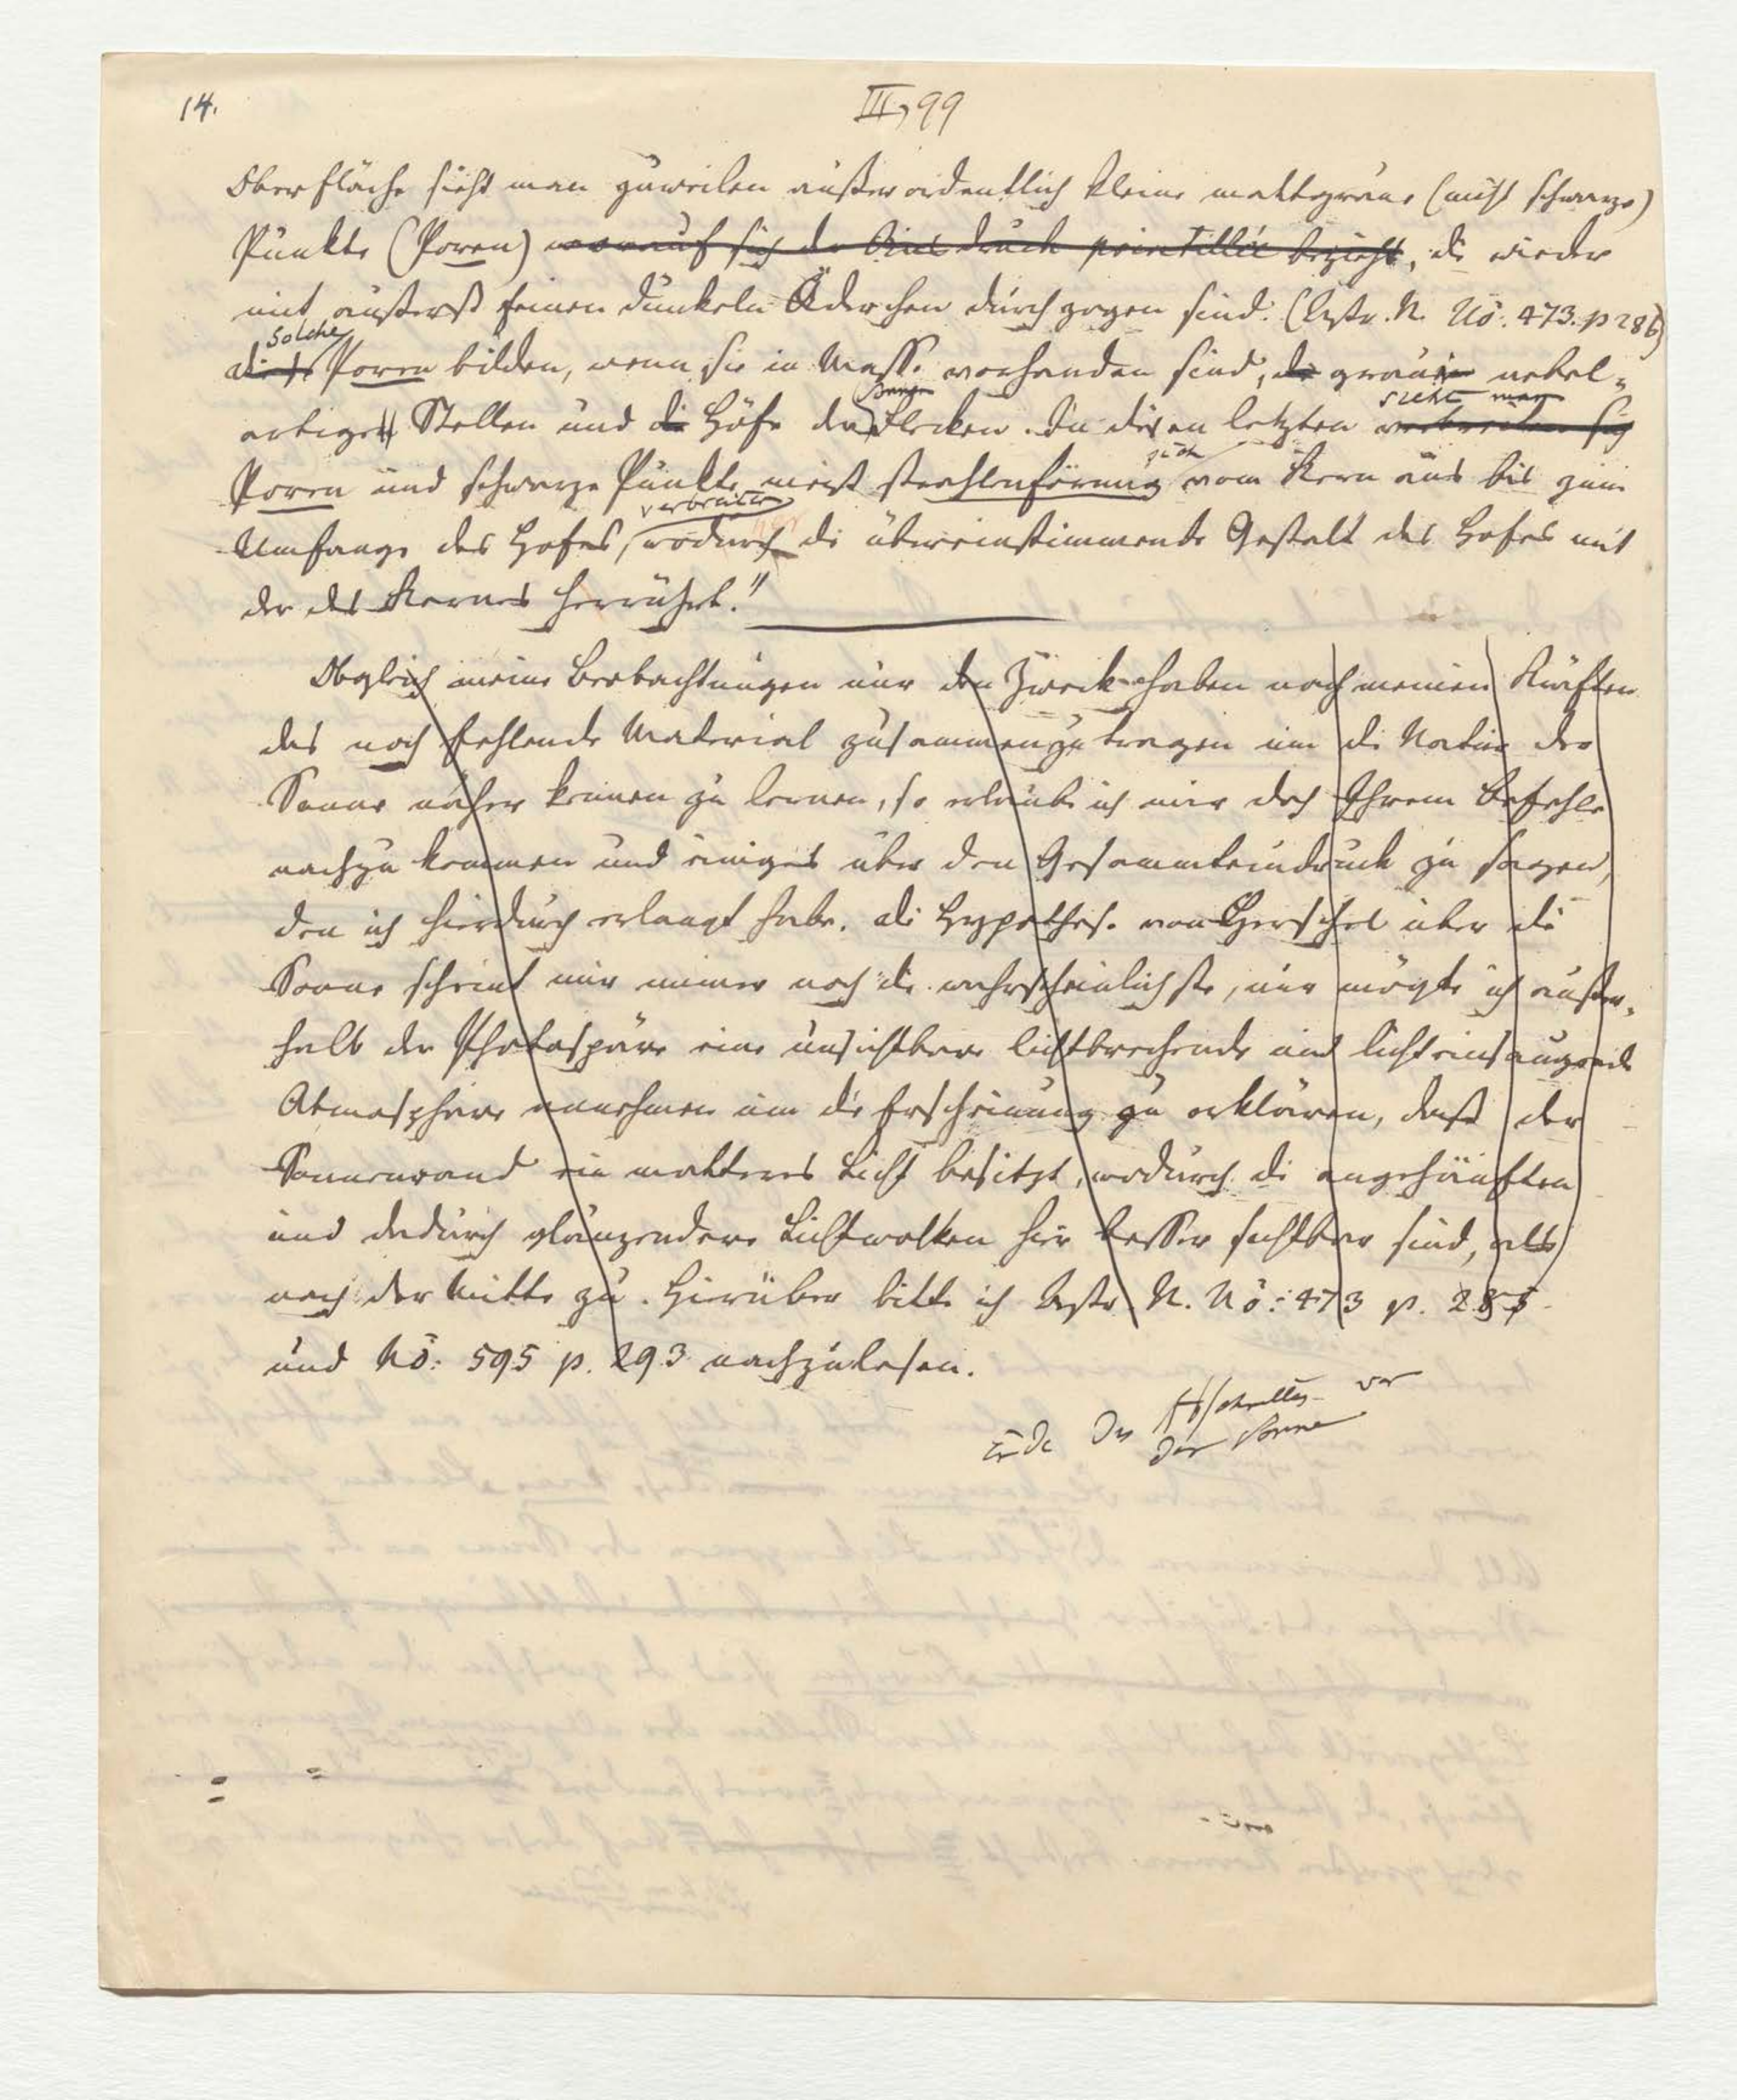 14.
III, 99
Oberfläche sieht man zuweilen außerordentlich kleine mattgraue (nicht schwarze)
Punkte (Poren) worauf sich der Ausdruck pointillée bezieht, die wieder
mit äußerst feinen dunkeln Äderchen durchzogen sind. (Astr. N. No: 473. p 286)
Solche
diese Poren bilden, wenn sie in Masse vorhanden sind, die grauen nebel-
artigen Stellen und die Höfe der Flecken. In diesen letzten
sieht man
verbreiten sich
Poren und schwarze Punkte meist strahlenförmig vom Kern aus bis zum
sich
verbreiten
Umfange des Hofes, wodurch die übereinstimmende Gestalt des Hofes mit
der des Kernes herrührt."
Obgleich meine Beobachtungen nur den Zweck haben nach meinen Kräften
das noch fehlende Material zusammenzutragen um die Natur der
Sonne näher kennen zu lernen, so erlaube ich mir doch Ihrem Befehle
nachzukommen und einiges über den Gesammteindruck zu sagen,
den ich hierdurch erlangt habe. Die Hypothese von Herschel über die
Sonne scheint mir immer noch die wahrscheinlichste, nur mögte ich außer-
halb der Photospäre eine unsichtbare lichtbrechende und lichteinsaugende
Atmosphäre annehmen um die Erscheinung zu erklären, daß der
Sonnenrand ein matteres Licht besitzt, wodurch die angehäuften
und dadurch glänzendere Lichtwolken hier besser sichtbar sind, als
nach der Mitte zu. Hierüber bitte ich Astr. N. No: 473 p. 285
und No: 595 p. 293 nachzulesen.
Ende des Abschnittes von
der Sonne